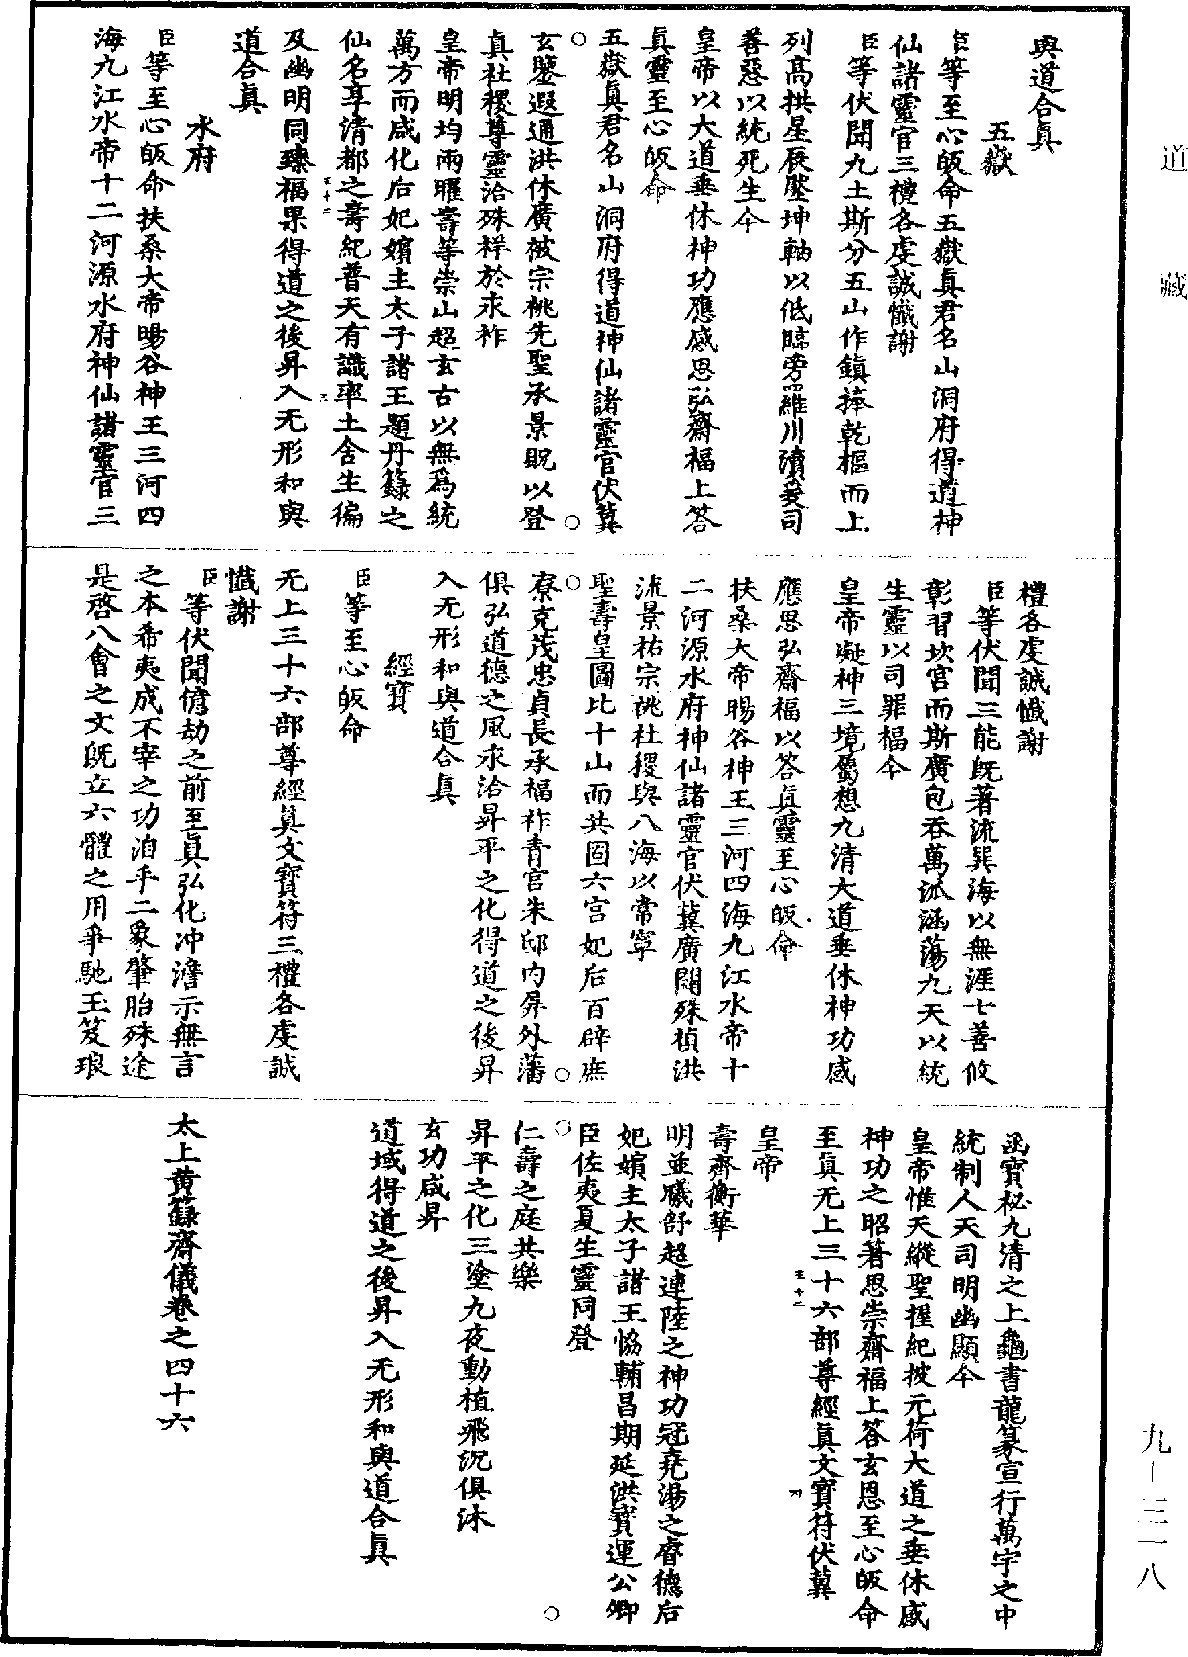 道藏
與道合眞
五嶽
臣等至心皈命五嶽眞君名山洞府得道神
仙諸靈官三禮各虔誠懺謝
臣等伏聞九土斯分五山作鎮捧乾樞而上
列高拱星辰壓坤軸以低臨旁羅川瀆爰司
善惡以統死生今
皇帝以大道垂休神功應感思弘齋福上答
眞靈至心皈命
五嶽眞君名山洞府得道神仙諸靈官伏冀
玄鑒遐通洪休廣被宗祧先聖承景貺以登
眞社稷尊靈洽殊祥於永祚
皇帝明均兩曜壽等崇山超玄古以無爲統
萬方而咸化后妃嬪主太子諸王題丹籙之
仙名享清都之壽紀普天有識率土含生徧
及幽明同臻福果得道之後昇入无形和與
道合眞
水府
臣等至心皈命扶桑大帝暘谷神王三河四
海九江水帝十二河源水府神仙諸靈官三
禮各虔誠懺謝
臣等伏聞三能旣著流巽海以無涯七善攸
彰習坎宮而斯廣包吞萬派涵蕩九天以統
生靈以司罪福今
皇帝凝神三境屬想九清大道垂休神功感
應思弘齋福以答眞靈至心皈命
扶桑大帝暘谷神王三河四海九江水帝十
二河源水府神仙諸靈官伏冀廣闢殊禎洪
流景祐宗祧社稷與八海以常寧
聖壽皇圖比十山而共固六宮妃后百辟庶
寮克茂忠貞長承福祚青宮朱邸内屏外藩
俱弘道德之風永洽昇平之化得道之後昇
入无形和與道合眞
經寶
臣等至心皈命
无上三十六部尊經眞文寶符三禮各虔誠
懺謝
臣等伏聞億劫之前至眞弘化冲澹示無言
之本希夷成不宰之功洎乎二象肇胎殊途
是啓八會之文旣立六體之用爭馳玉笈琅
函寶秘九清之上龜書龍篆宣行萬宇之中
統制人天司明幽顯今
皇帝惟天縱聖握紀披元荷大道之垂休感
神功之昭著思崇齋福上答玄恩至心皈命
至眞无上三十六部尊經眞文寶符伏冀
皇帝
壽齊衡華
明並曦舒超連陸之神功冠堯湯之睿德后
妃嬪主太子諸王恊輔昌期延洪寶運公卿
臣佐夷夏生靈同登
仁壽之庭共樂
昇平之化三塗九夜動植飛沉俱沐
玄功咸昇
道域得道之後昇入无形和與道合眞
太上黄籙齋儀卷之四十六
九—三一八